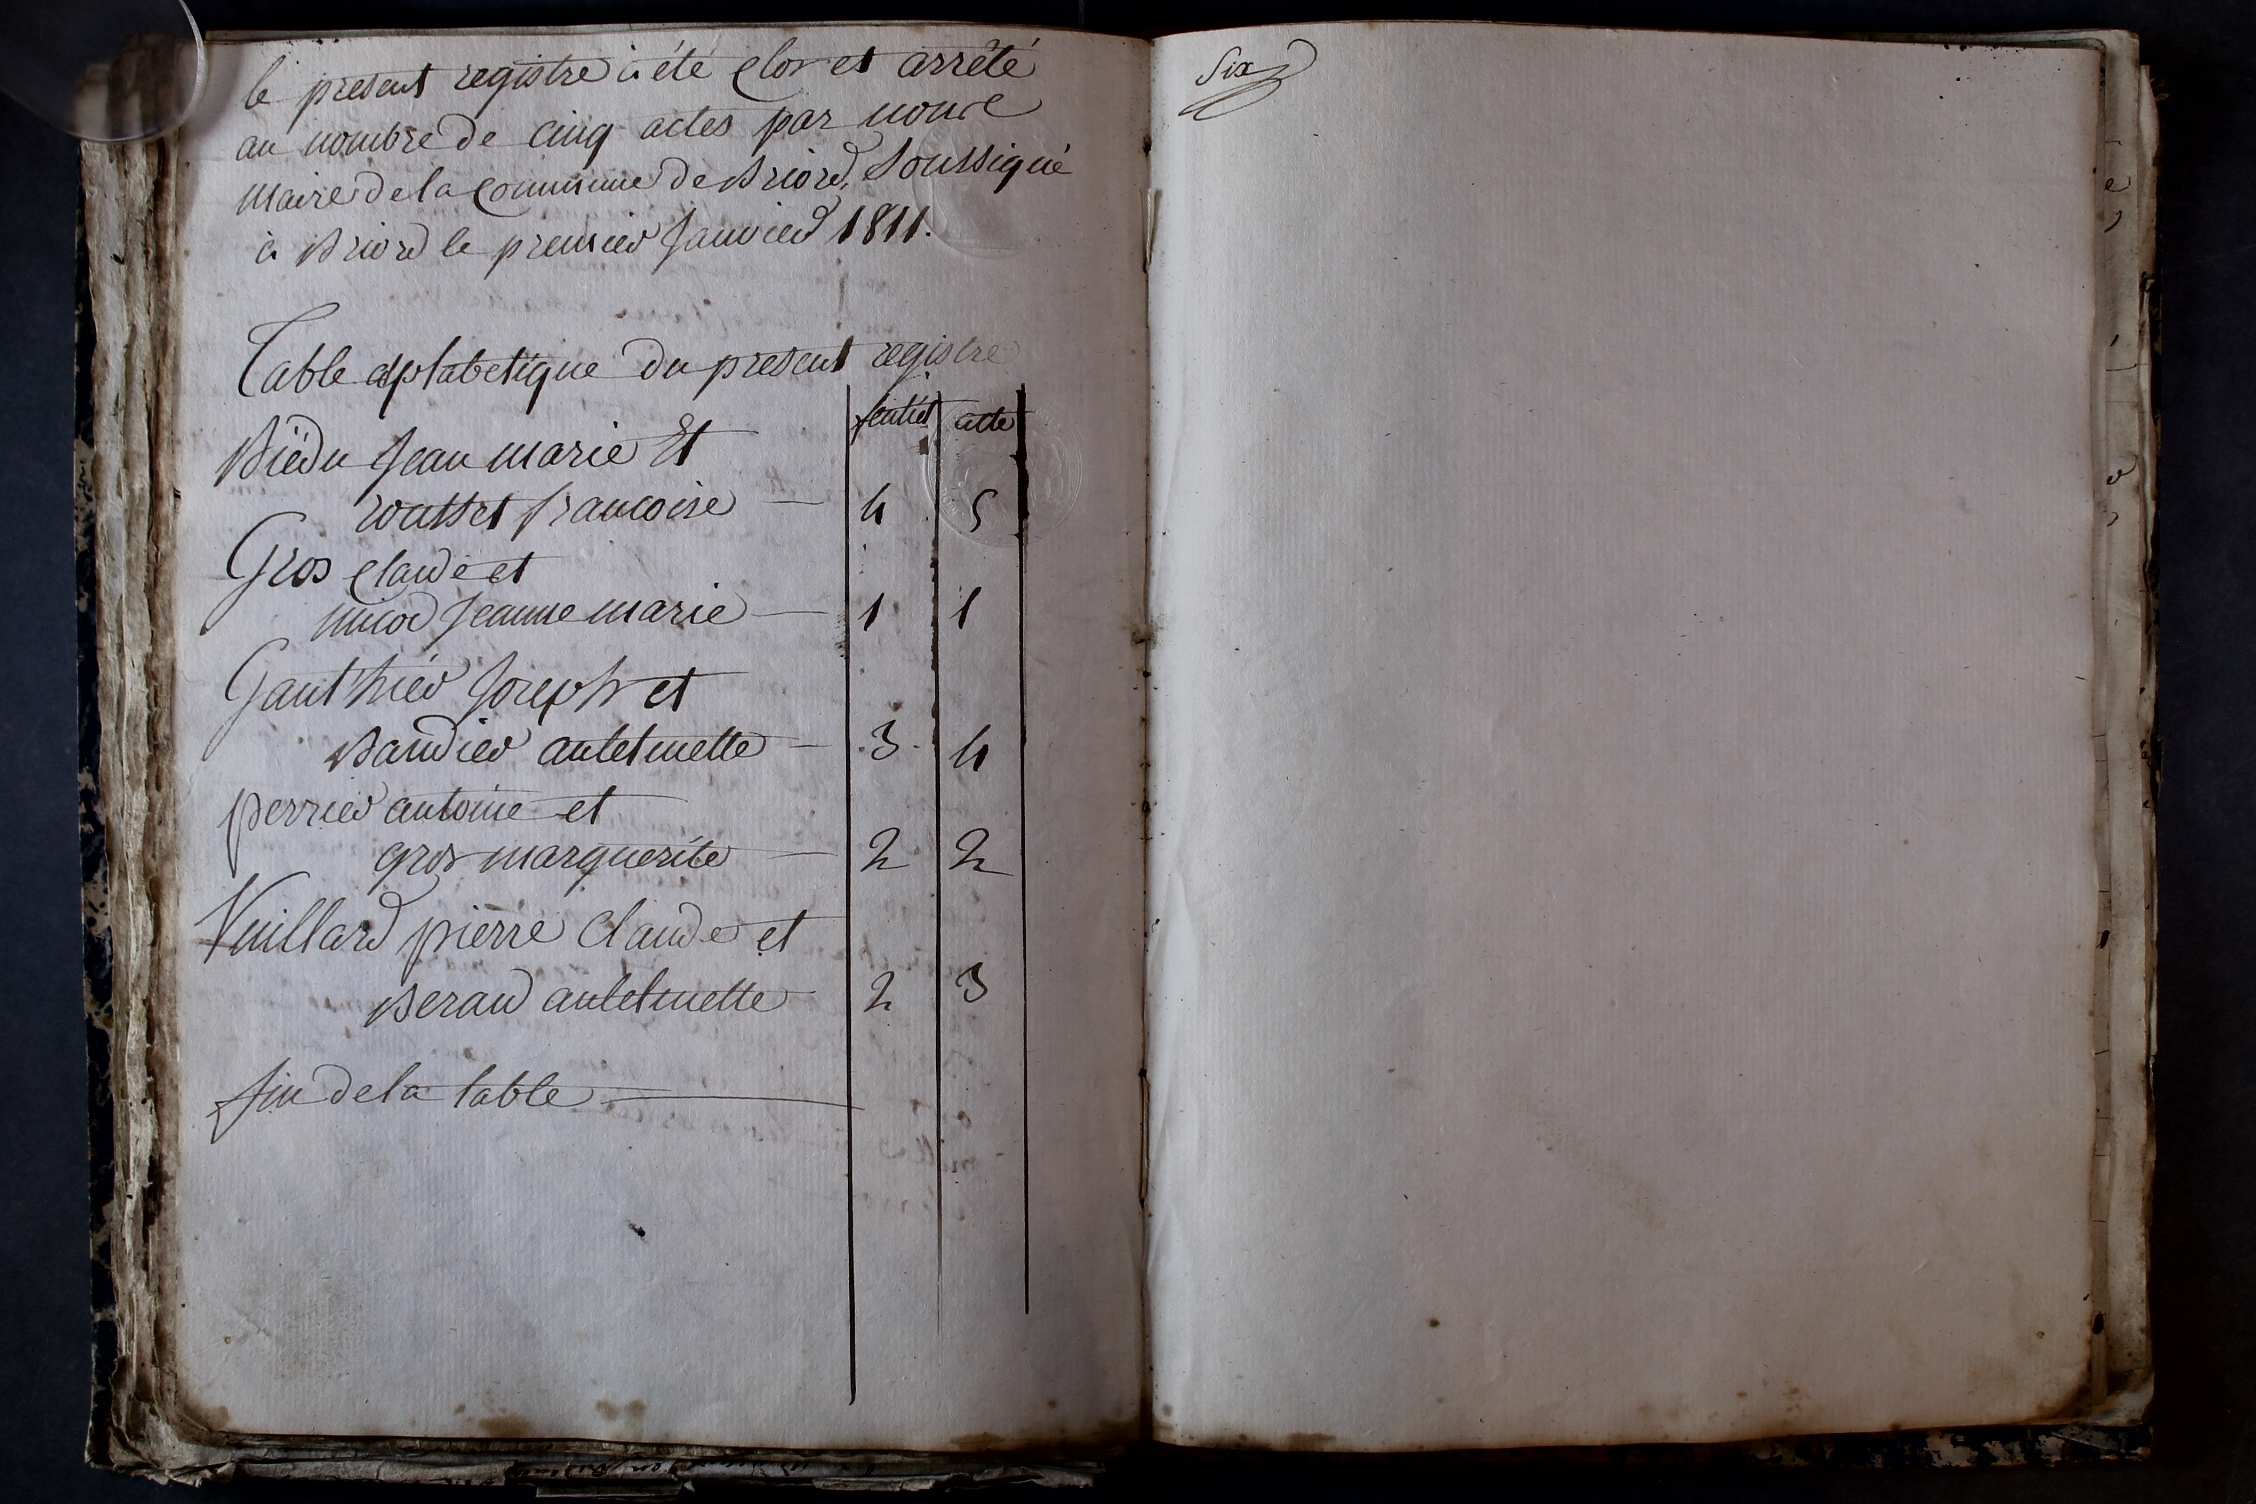 le present registre à été clos et arrêté
au nombre de cinq actes par nous
maire de la commune de Briord, Soussigné
à Briord le premier Janvier 1811.
Table alphabetique du present registre
feuliet acte
Biédu Jean marie Et
rousset francoise — 4 5
Gros claude et
nicod Jeanne marie — 1 1
Gauthier Joseph et
Baudier antetnette — 3 4
perrier antoine et
gros marguerite — 2 2
Vuillard pierre Claude et
Beraud antetnette 2 3
fin de la table
Six